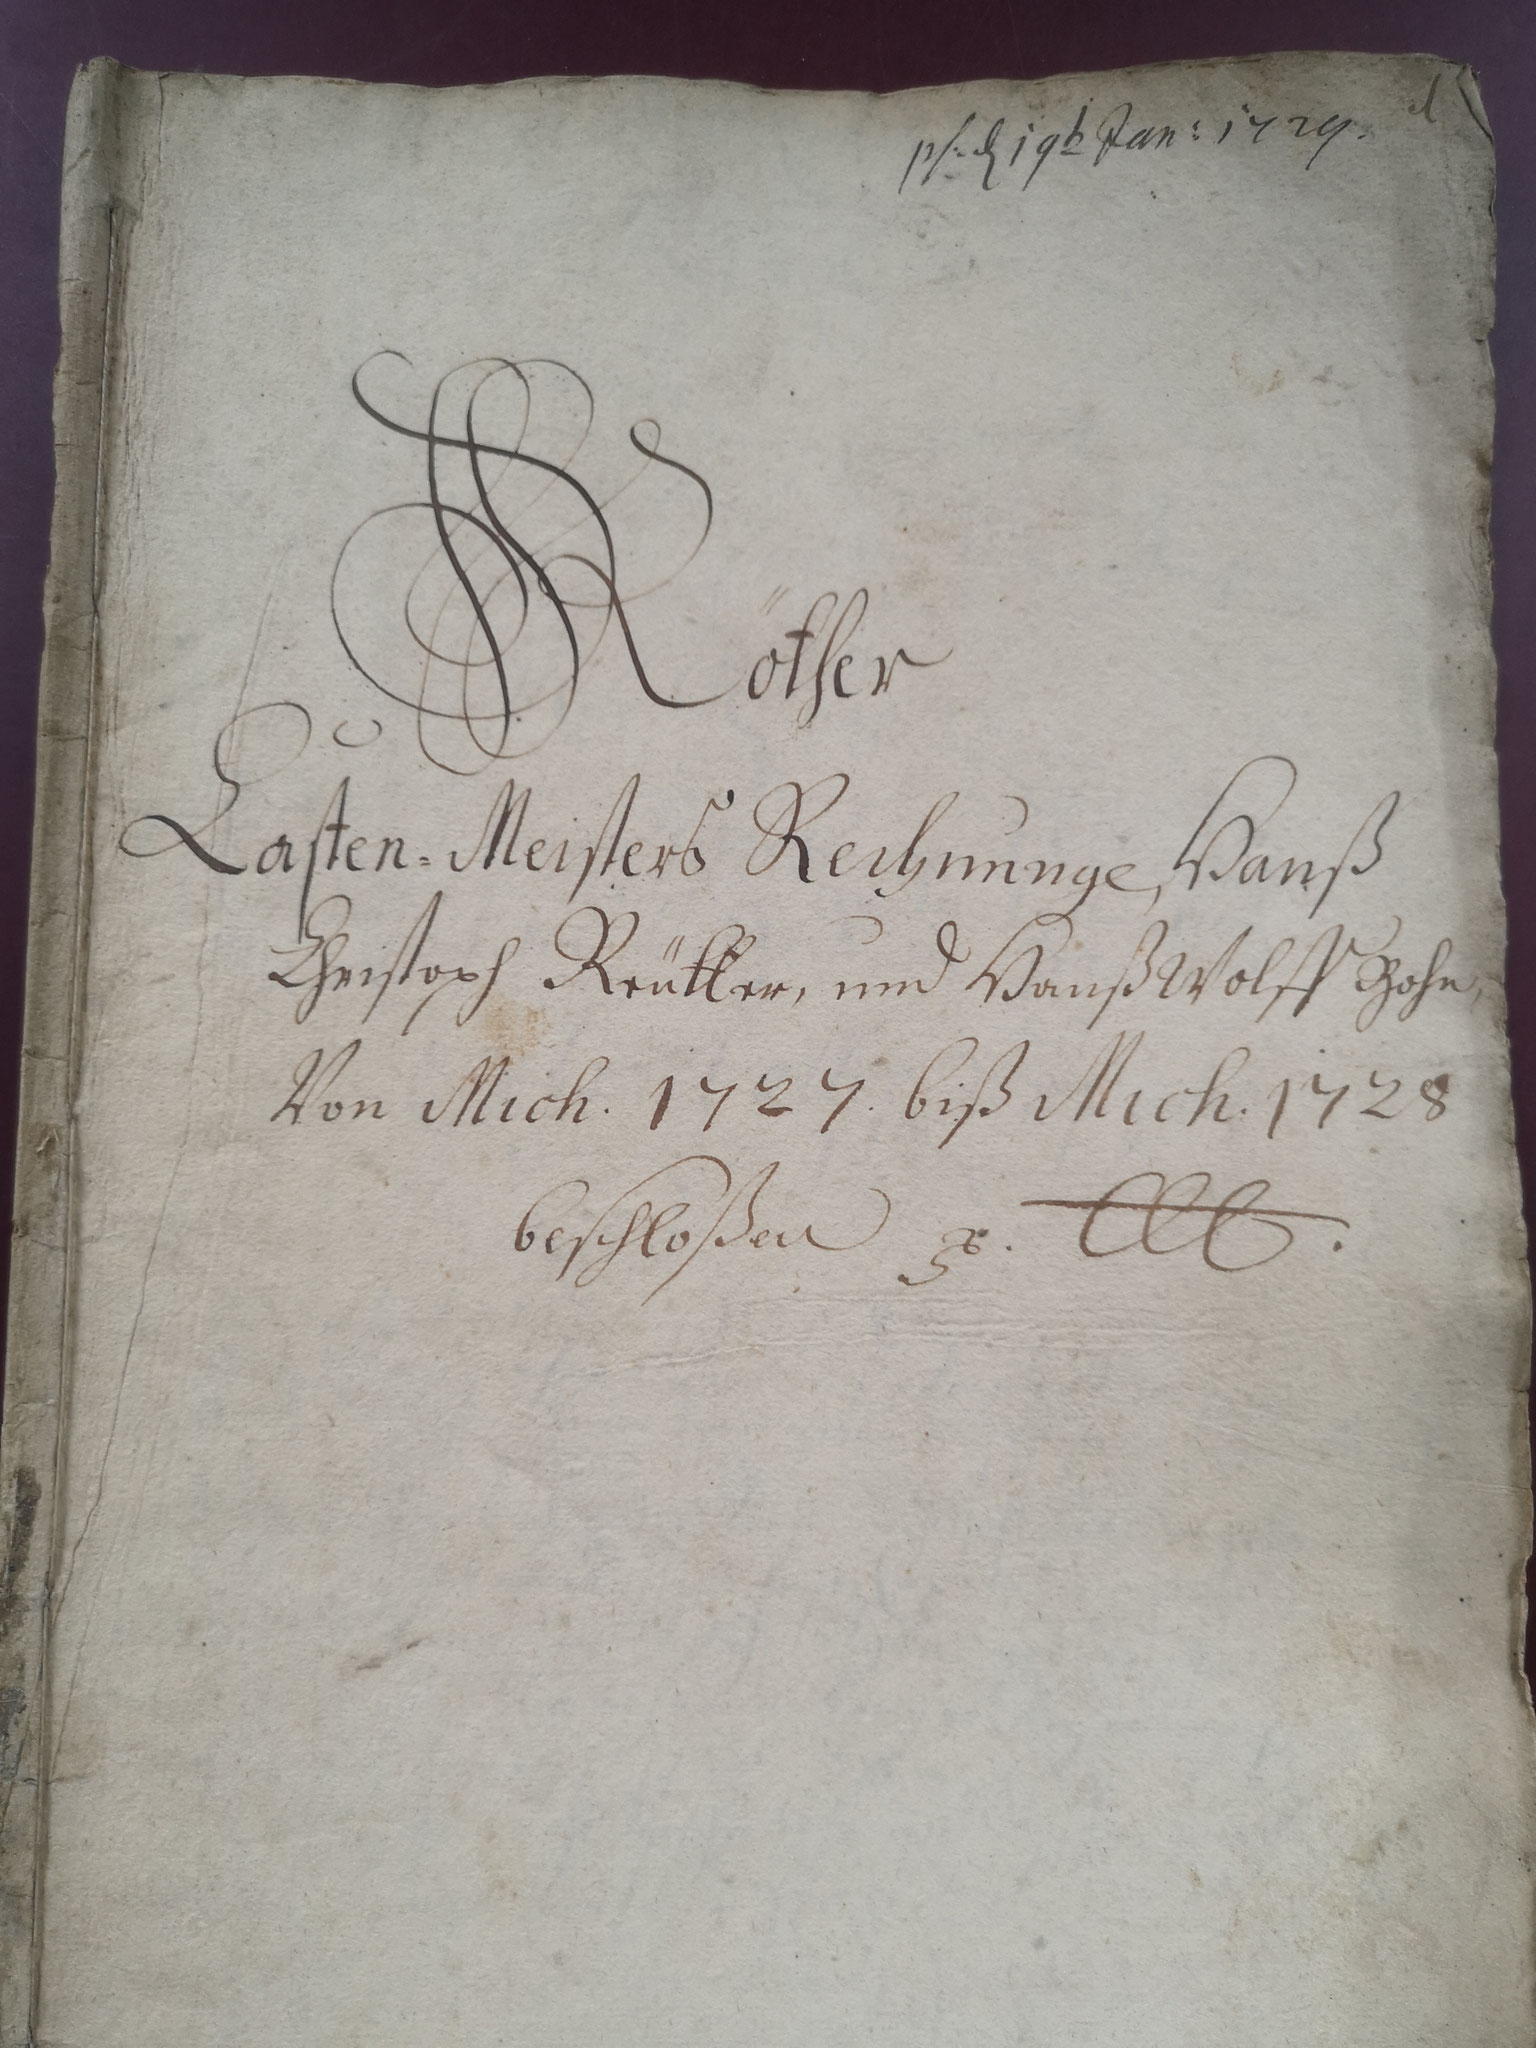 ps. d 19 t Jan: 1729.
Röther
Casten-Meisters Rechnunge, Hanß
Christoph Reütter, und Hanß Wolff Hohn,
Von Mich. 1727. biß Mich. 1728
beschloßen